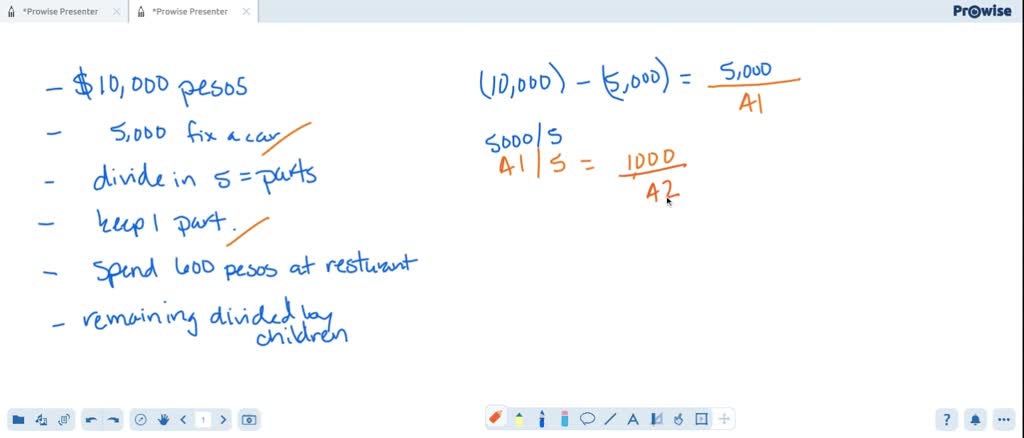 *Prowise Presenter
*Prowise Presenter
Prowise
- $10,000 pesos
- 5,000 fix a car
- divide in 5 = parts
- keep 1 part.
- spend 600 pesos at resturant
- remaining divided by
children
(10,000) - (5,000) = 5,000
A1
5000/5
A1/5 = 1000
A2
1
A
?